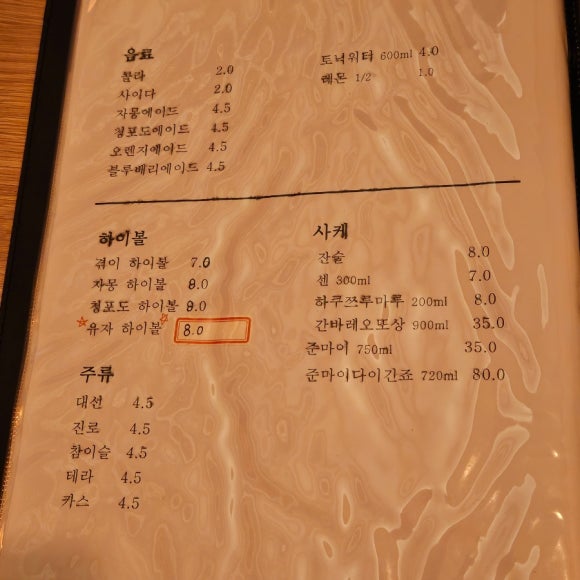 음료
콜라 2.0
사이다 2.0
자몽에이드 4.5
청포도에이드 4.5
오렌지에이드 4.5
블루베리에이드 4.5
토닉워터 600ml 4.0
레몬 1/2 1.0
하이볼
겪이 하이볼 7.0
자몽 하이볼 8.0
청포도 하이볼 8.0
유자 하이볼 8.0
사케
잔술 8.0
센 300ml 7.0
하쿠쯔루마루 200ml 8.0
간바레오또상 900ml 35.0
준마이 750ml 35.0
준마이다이긴죠 720ml 80.0
주류
대선 4.5
진로 4.5
참이슬 4.5
테라 4.5
카스 4.5